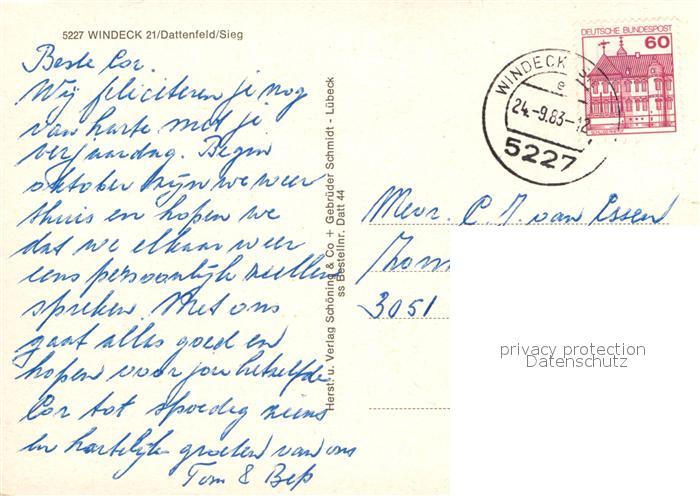 5227 WINDECK 21/Dattenfeld/Sieg
Beste Cor.
Wij feliciteren je nog
van harte met je
verjaardag. Begin
oktober zijn we weer
thuis en hopen we
dat we elkaar weer
eens persoonlijk zullen
spreken. Met ons
gaat alles goed en
hopen voor jou hetzelfde
Cor tot spoedig ziens
en hartelijke groeten van ons
Tom & Bep
Herst. u. Verlag Schöning & Co + Gebrüder Schmidt - Lübeck
ss Bestellnr. Datt 44
DEUTSCHE BUNDESPOST
60
WINDECK
e
24.-9.83-12
5227
Mevr. C. J. van Essen
3051
privacy protection
Datenschutz